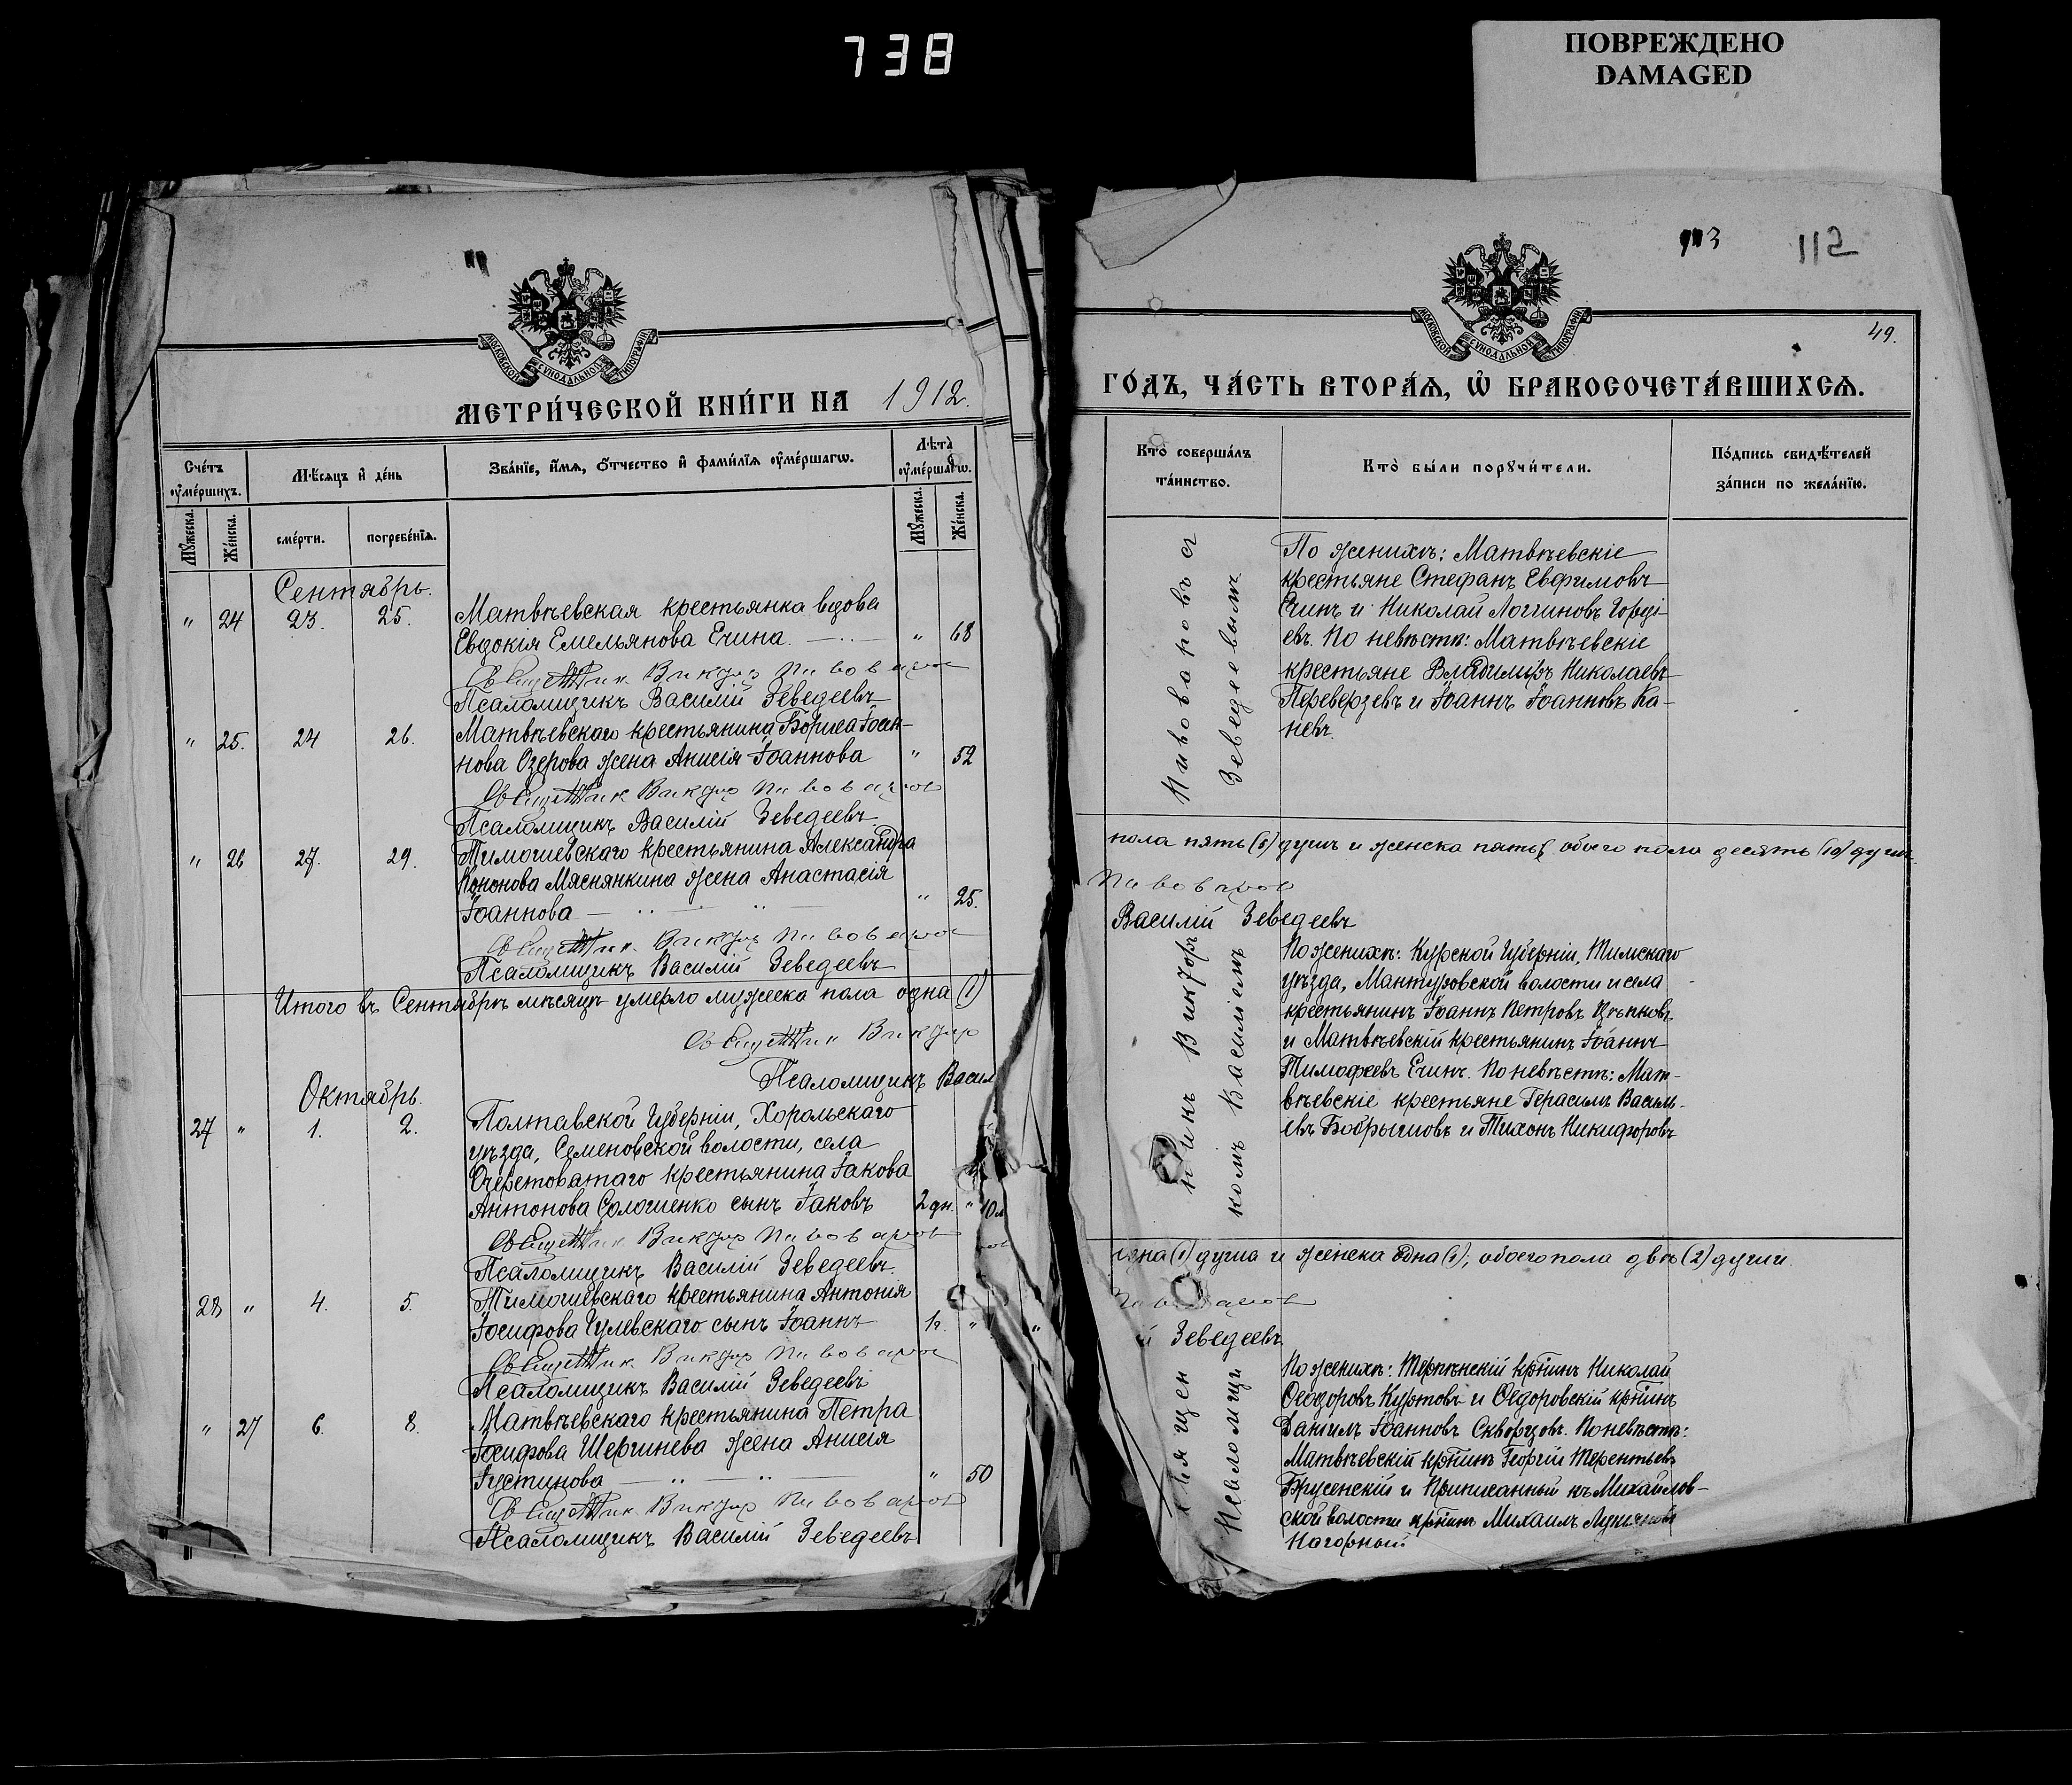 738
ПОВРЕЖДЕНО
DAMAGED
МОСКОВСКОЙ СѴНОДАЛЬНОЙ ТИПОГРАФІИ
МЕТРИ́ЧЕСКОЙ КНИ́ГИ НА 1912.
Сче́тъ ᲂу҆ме́ршихъ.
Мѣ́сяцъ и҆ де́нь
Зва́нїе, и҆́мѧ, ѻ҆́тчество и҆ фами́лїѧ ᲂу҆ме́ршагѡ.
Лѣта̀ ᲂу҆ме́ршагѡ.
Мꙋ́жеска. Же́нска. сме́рти. погребе́нїѧ. Мꙋ́жеска. Же́нска.
Сентябрь.
" 24 23. 25. Матвѣевская крестьянка вдова
Евдокія Емельянова Ечина. " 68
Священник Виктор Пивоваров
Псаломщикъ Василій Зеведеевъ
" 25. 24 26. Матвѣевскаго крестьянина Бориса Іоан-
нова Озерова жена Анисія Іоаннова " 52
Священник Виктор Пивоваров
Псаломщикъ Василій Зеведеевъ
" 26 27. 29. Тимошевскаго крестьянина Александра
Кононова Мяснянкина жена Анастасія
Іоаннова " 25.
Священник Виктор Пивоваров
Псаломщикъ Василій Зеведеевъ
Итого въ Сентябрѣ мѣсяцѣ умерло мужеска пола одна (1)
Священник Виктор
Псаломщикъ Васил
Октябрь.
27 " 1. 2. Полтавской Губерніи, Хорольскаго
уѣзда, Семеновской волости, села
Очеретоватаго крестьянина Іакова
Антонова Солошенко сынъ Іаковъ 2 дн. "
Священник Виктор Пивоваров
Псаломщикъ Василій Зеведеевъ.
28 " 4. 5. Тимошевскаго крестьянина Антонія
Іосифова Гулевскаго сынъ Іоаннъ 1г. "
Священник Виктор Пивоваров
Псаломщикъ Василій Зеведеевъ
" 27 6. 8. Матвѣевскаго крестьянина Петра
Іосифова Шергинева жена Анисія
Іустинова " 50
Священник Виктор Пивоваров
Псаломщикъ Василій Зеведеевъ
112
49.
МОСКОВСКОЙ СѴНОДАЛЬНОЙ ТИПОГРАФІИ
ГО́ДЪ, ЧА́СТЬ ВТОРА́Ѧ, Ѡ҆ БРАКОСОЧЕТА́ВШИХСѦ.
Кто̀ соверша́лъ та́инство.
Кто̀ бы́ли порꙋчи́тели.
По́дпись свидѣ́телей за́писи по жела́нїю.
Пивоваровъ съ
Зеведеевымъ
По женихѣ: Матвѣевскіе
крестьяне Стефанъ Евфимовъ
Ечинъ и Николай Логгиновъ Горді-
евъ. По невѣстѣ: Матвѣевскіе
крестьяне Владиміръ Николаевъ
Переверзевъ и Іоаннъ Іоанновъ Ка-
невъ.
пола пять (5) душъ и женска пять, обоего пола десять (10) душъ.
Пивоваров
Василій Зеведеевъ
никъ Викторъ
комъ Василіемъ
По женихѣ: Курской Губерніи, Тимскаго
уѣзда, Мантуровской волости и села
крестьянинъ Іоаннъ Петровъ Цѣпковъ
и Матвѣевскій крестьянинъ Іоаннъ
Тимофеевъ Ечинъ. По невѣстѣ: Мат-
вѣевскіе крестьяне Герасимъ Василь-
евъ Бобрышовъ и Тихонъ Никифоровъ
одна (1) душа и женска одна (1), обоего пола двѣ (2) души.
Пивоваров
й Зеведеевъ
Священ
Псаломщи
По женихѣ: Терпѣнскій кр̃нинъ Николай
Ѳеодоровъ Куртовъ и Ѳедоровскій кр̃нинъ
Даніилъ Іоанновъ Скворцовъ. По невѣстѣ:
Матвѣевскій кр̃нинъ Георгій Терентьевъ
Брусенскій и Приписанный къ Михайлов-
ской волости кр̃нинъ Михаилъ Лукьяновъ
Нагорный